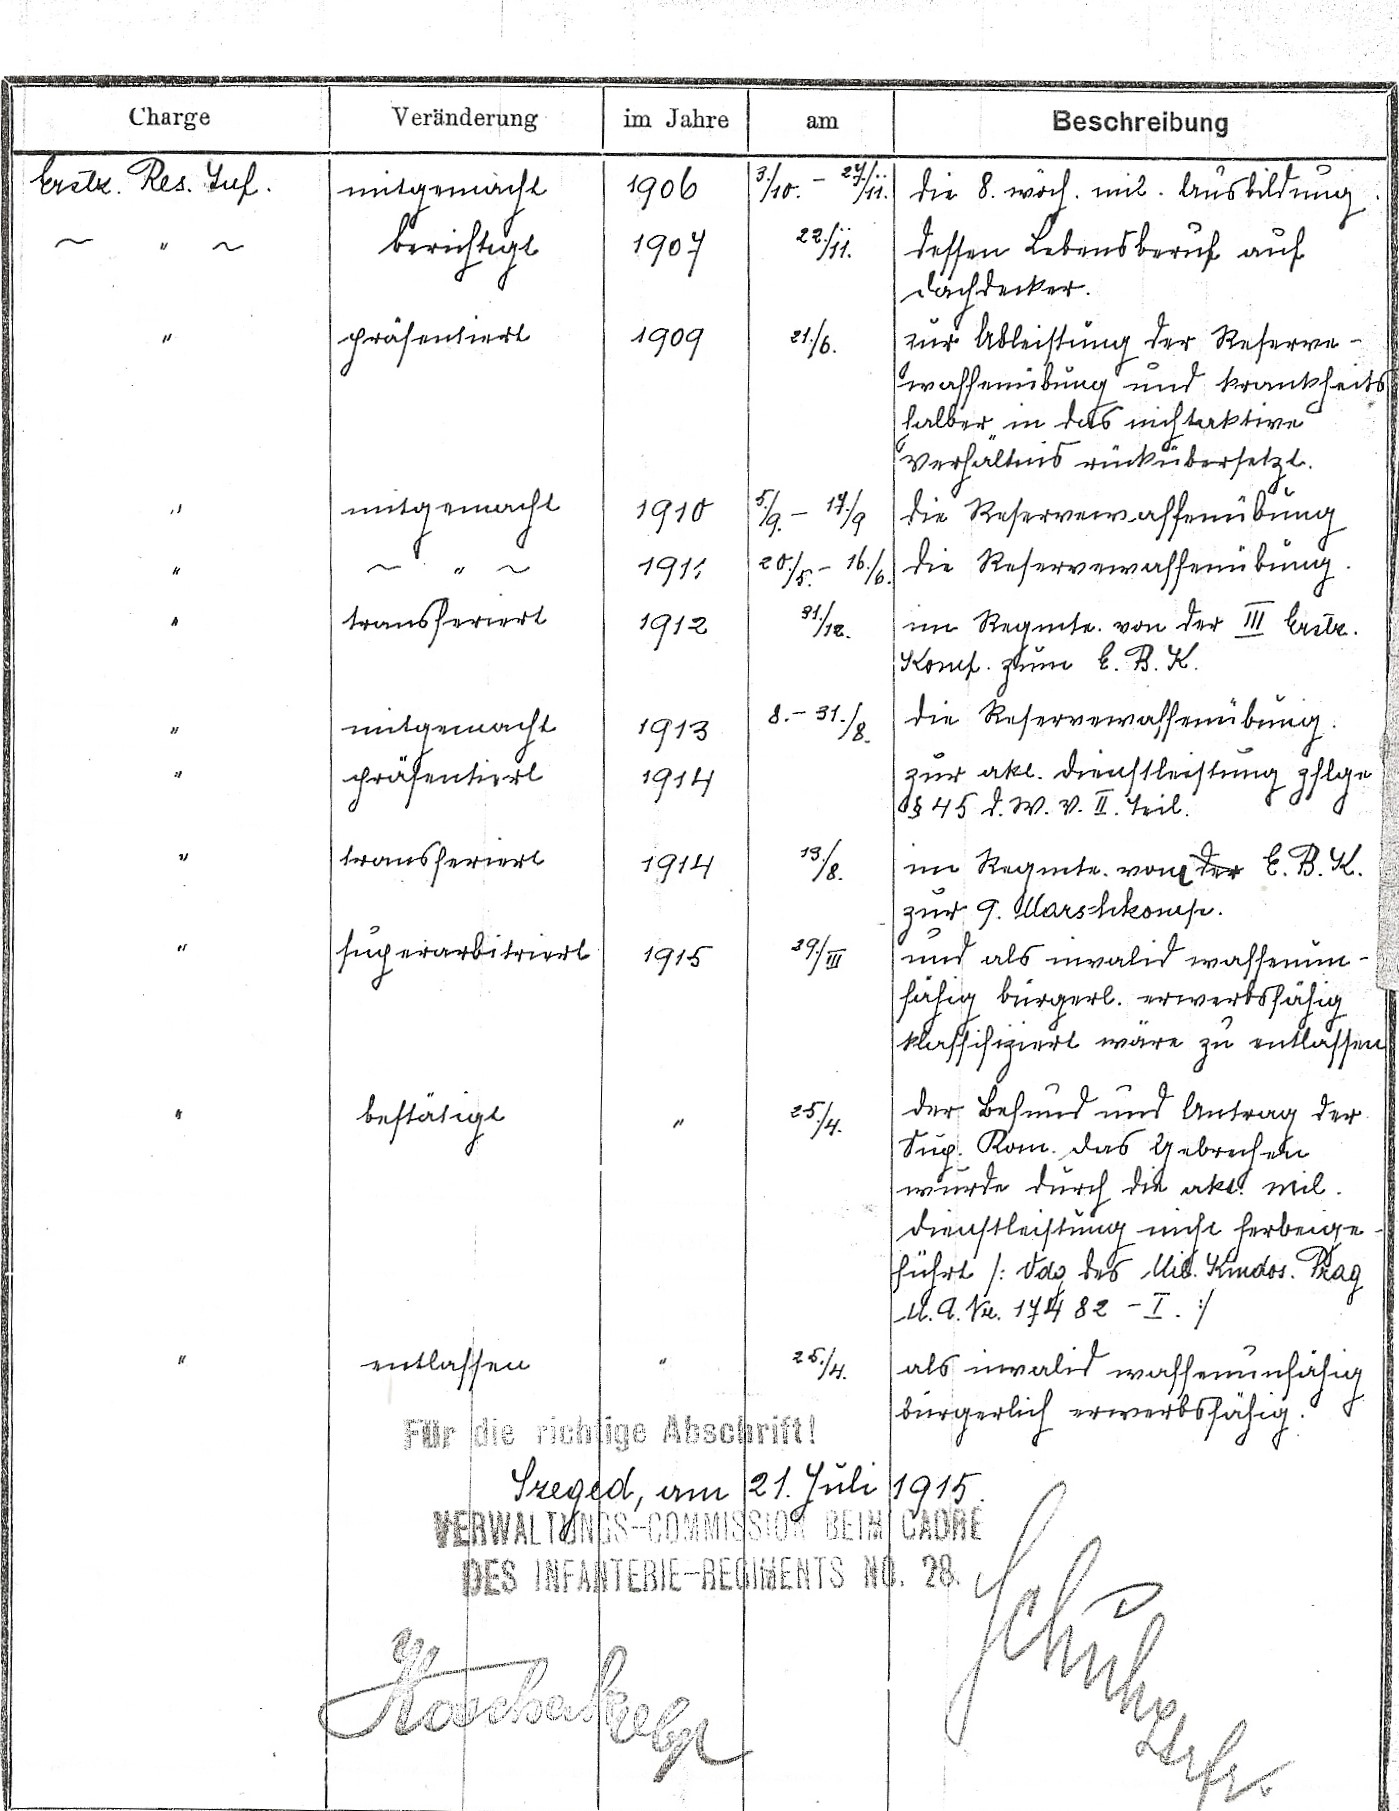 Charge Veränderung im Jahre am Beschreibung
Erstz. Res. Inf. mitgemacht 1906 3./10. – 27./11. die 8. wöch. mil. Ausbildung.
~ " ~ berichtigt 1907 22./11. dessen Lebensberuf auf
Dachdecker.
" präsentiert 1909 21./6. zur Ableistung der Reserve-
waffenübung und krankheits
halber in das nichtaktive
Verhältnis rückübersetzt.
" mitgemacht 1910 5./9. – 17./9 die Reservewaffenübung
" ~ " ~ 1911 20./5. – 16./6. die Reservewaffenübung.
" transferiert 1912 31./12. im Regmte. von der III Erstz.
Komp. zum E. B. K.
" mitgemacht 1913 8. – 31./8. die Reservewaffenübung.
" präsentiert 1914 zur akt. Dienstleistung zflge
§ 45 d. W. V. II. Teil.
" transferiert 1914 13./8. im Regmte. von der E. B. K.
zur 9. Marschkomp.
" superarbitriert 1915 29./III und als invalid waffenun-
fähig bürgerl. erwerbsfähig
klassifiziert wäre zu entlassen
" bestätigt " 25./4. der Befund und Antrag der
Sup. Kom. das Gebrechen
wurde durch die akt. mil.
Dienstleistung nicht herbeige-
führt /: Vdg des Mil. Kmdos. Prag
M. A. Nr. 17482 – I. :/
" entlassen " 25./4. als invalid waffenunfähig
bürgerlich erwerbsfähig.
Für die richtige Abschrift!
Szeged, am 21. Juli 1915.
VERWALTUNGS-COMMISSION BEIM CADRE
DES INFANTERIE-REGIMENTS NO. 28.